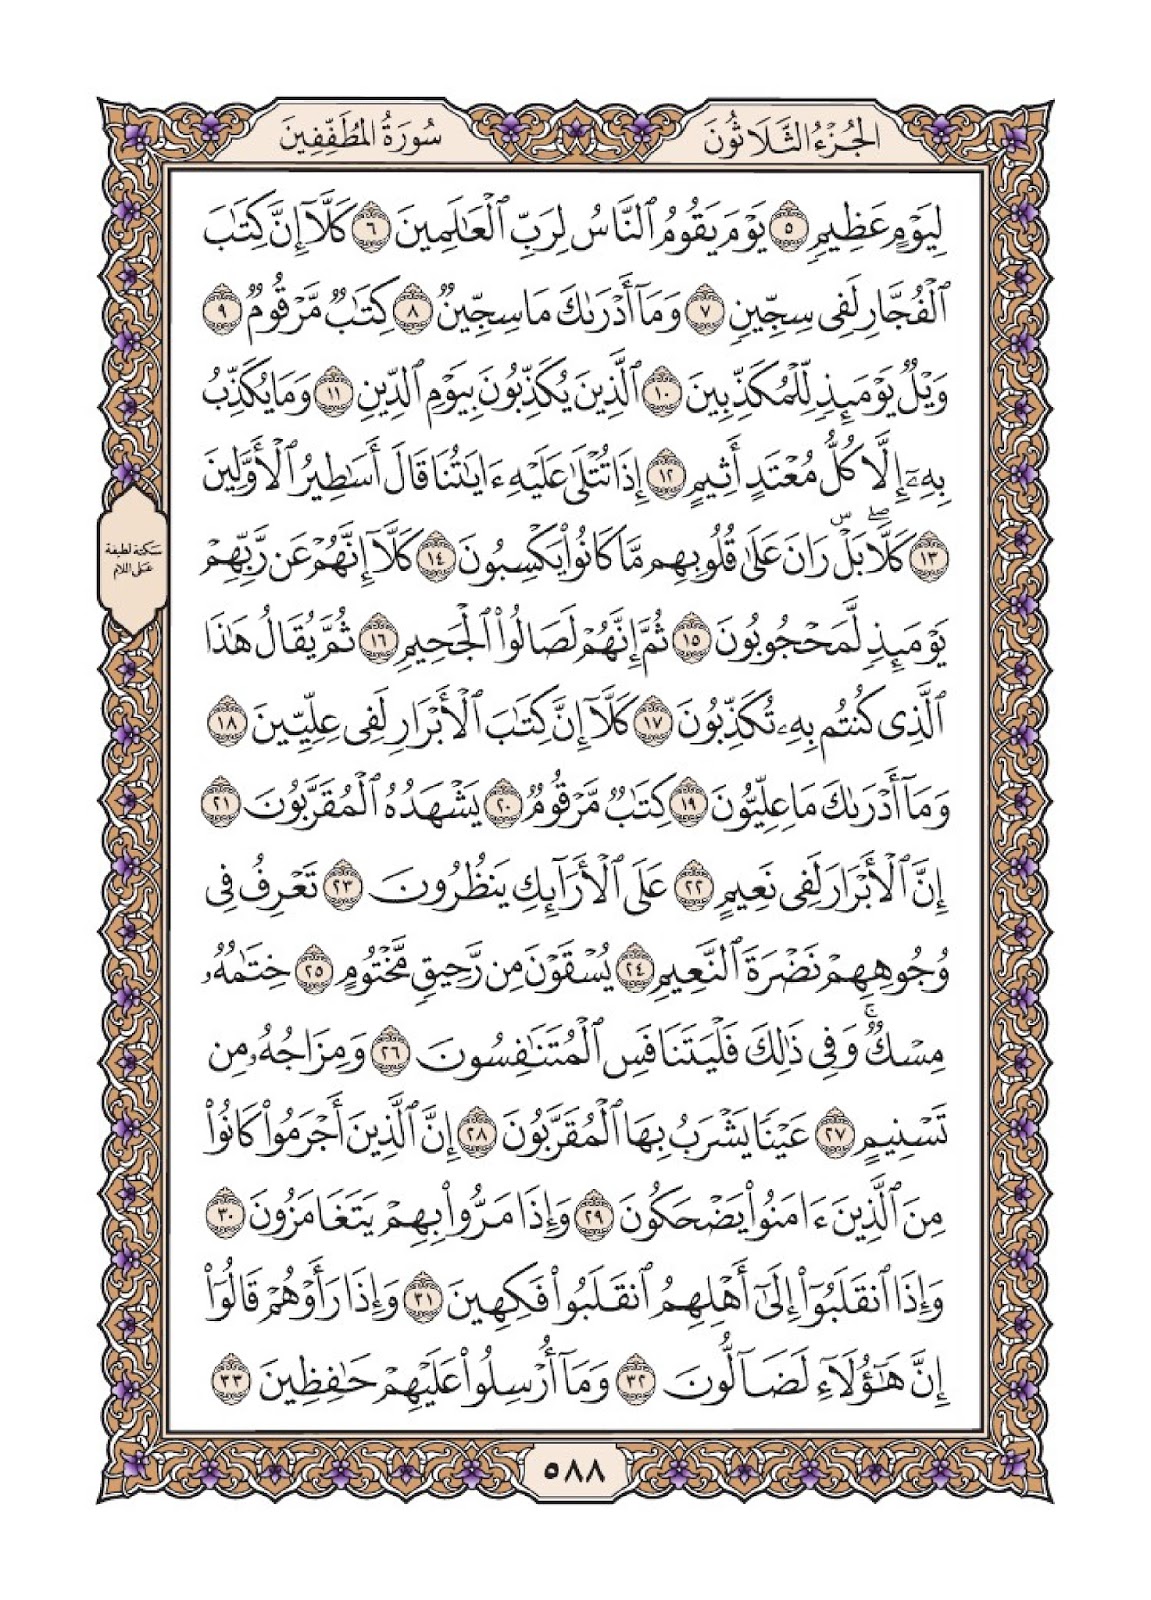 الجُزْءُ الثَّلَاثُونَ
سُورَةُ المُطَفِّفِينَ
لِيَوْمٍ عَظِيمٍ ٥ يَوْمَ يَقُومُ ٱلنَّاسُ لِرَبِّ ٱلْعَٰلَمِينَ ٦ كَلَّآ إِنَّ كِتَٰبَ
ٱلْفُجَّارِ لَفِى سِجِّينٍ ٧ وَمَآ أَدْرَىٰكَ مَا سِجِّينٌ ٨ كِتَٰبٌ مَّرْقُومٌ ٩
وَيْلٌ يَوْمَئِذٍ لِّلْمُكَذِّبِينَ ١٠ ٱلَّذِينَ يُكَذِّبُونَ بِيَوْمِ ٱلدِّينِ ١١ وَمَا يُكَذِّبُ
بِهِۦٓ إِلَّا كُلُّ مُعْتَدٍ أَثِيمٍ ١٢ إِذَا تُتْلَىٰ عَلَيْهِ ءَايَٰتُنَا قَالَ أَسَٰطِيرُ ٱلْأَوَّلِينَ
١٣ كَلَّا ۖ بَلْ ۜ رَانَ عَلَىٰ قُلُوبِهِم مَّا كَانُوا۟ يَكْسِبُونَ ١٤ كَلَّآ إِنَّهُمْ عَن رَّبِّهِمْ
سكتة لطيفة
على اللام
يَوْمَئِذٍ لَّمَحْجُوبُونَ ١٥ ثُمَّ إِنَّهُمْ لَصَالُوا۟ ٱلْجَحِيمِ ١٦ ثُمَّ يُقَالُ هَٰذَا
ٱلَّذِى كُنتُم بِهِۦ تُكَذِّبُونَ ١٧ كَلَّآ إِنَّ كِتَٰبَ ٱلْأَبْرَارِ لَفِى عِلِّيِّينَ ١٨
وَمَآ أَدْرَىٰكَ مَا عِلِّيُّونَ ١٩ كِتَٰبٌ مَّرْقُومٌ ٢٠ يَشْهَدُهُ ٱلْمُقَرَّبُونَ ٢١
إِنَّ ٱلْأَبْرَارَ لَفِى نَعِيمٍ ٢٢ عَلَى ٱلْأَرَآئِكِ يَنظُرُونَ ٢٣ تَعْرِفُ فِى
وُجُوهِهِمْ نَضْرَةَ ٱلنَّعِيمِ ٢٤ يُسْقَوْنَ مِن رَّحِيقٍ مَّخْتُومٍ ٢٥ خِتَٰمُهُۥ
مِسْكٌ ۚ وَفِى ذَٰلِكَ فَلْيَتَنَافَسِ ٱلْمُتَنَٰفِسُونَ ٢٦ وَمِزَاجُهُۥ مِن
تَسْنِيمٍ ٢٧ عَيْنًا يَشْرَبُ بِهَا ٱلْمُقَرَّبُونَ ٢٨ إِنَّ ٱلَّذِينَ أَجْرَمُوا۟ كَانُوا۟
مِنَ ٱلَّذِينَ ءَامَنُوا۟ يَضْحَكُونَ ٢٩ وَإِذَا مَرُّوا۟ بِهِمْ يَتَغَامَزُونَ ٣٠
وَإِذَا ٱنقَلَبُوٓا۟ إِلَىٰٓ أَهْلِهِمُ ٱنقَلَبُوا۟ فَكِهِينَ ٣١ وَإِذَا رَأَوْهُمْ قَالُوٓا۟
إِنَّ هَٰٓؤُلَآءِ لَضَآلُّونَ ٣٢ وَمَآ أُرْسِلُوا۟ عَلَيْهِمْ حَٰفِظِينَ ٣٣
٥٨٨